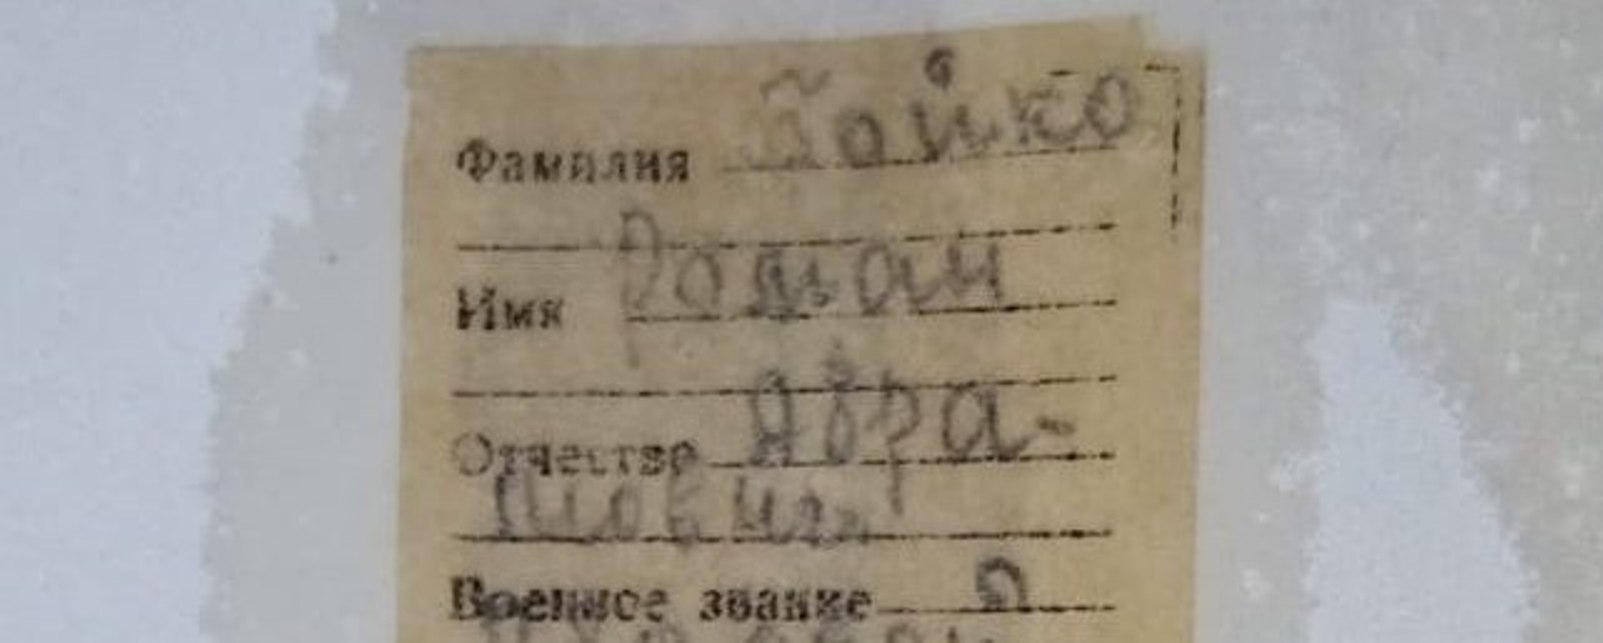 Фамилия Бойко
Имя Роман
Отчество Абра-
мович
Военное звание